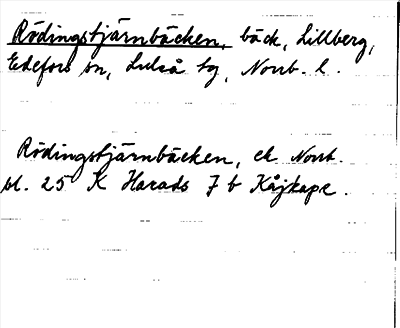 Rödingstjärnbäcken, bäck, Lillberg,
Edefors sn, Luleå tg, Norrb. l.
Rödingstjärnbäcken, ek. Norrb.
bl. 25 K Harads 7 b Kåjkape.